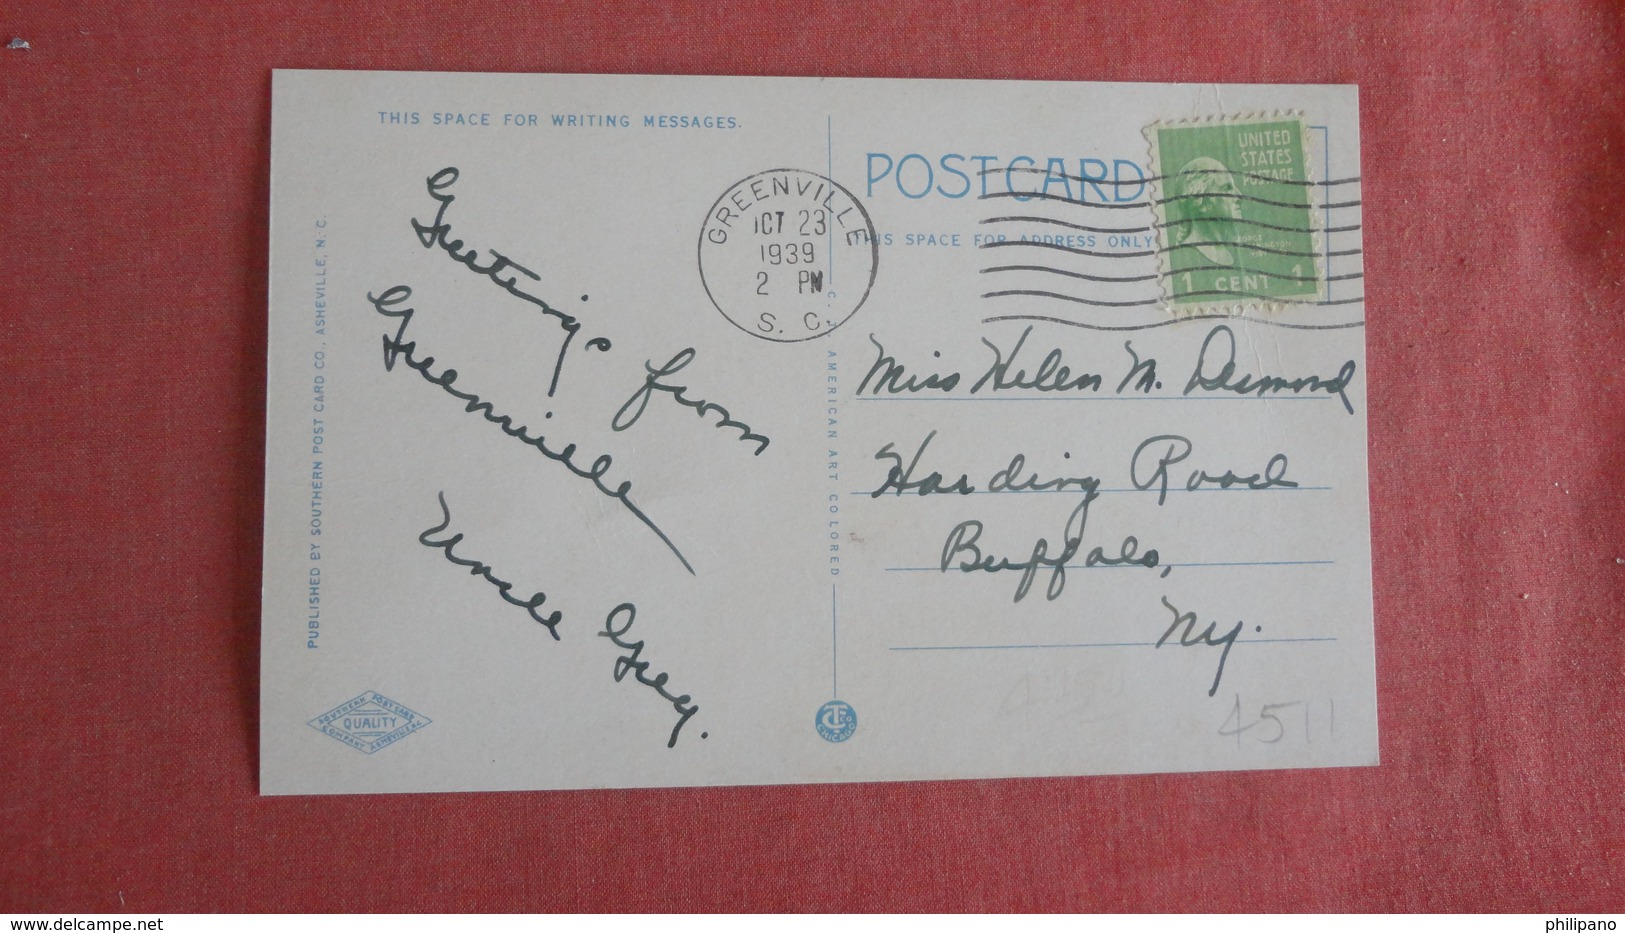 THIS SPACE FOR WRITING MESSAGES.
Greetings from
Greenville
Uncle Greg.
PUBLISHED BY SOUTHERN POST CARD CO., ASHEVILLE, N. C.
SOUTHERN POST CARD
QUALITY
COMPANY ASHEVILLE N.C.
GREENVILLE
OCT 23
1939
2 PM
S. C.
POST CARD
THIS SPACE FOR ADDRESS ONLY
UNITED
STATES
POSTAGE
GEORGE
WASHINGTON
1 CENT 1
C. T. AMERICAN ART COLORED
CT CO
CHICAGO
Miss Helen M. Desmond
Harding Road
Buffalo,
N.Y.
4511
delcampe.net
philipano